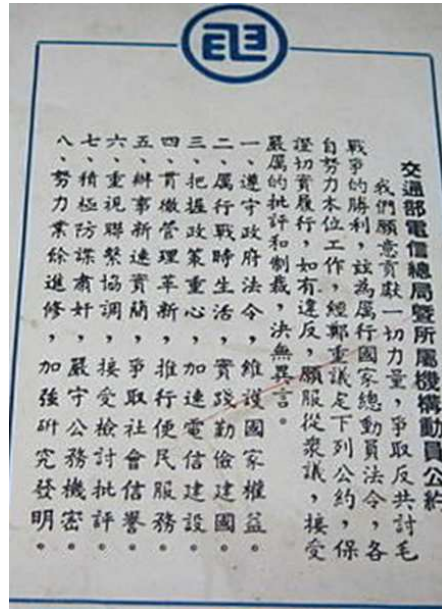 交通部電信總局暨所屬機構動員公約
我們願意貢獻一切力量，爭取反共討毛
戰爭的勝利，玆為厲行國家總動員法令，各
自努力本位工作，經鄭重議定下列公約，保
證切實履行，如有違反，願服從衆議，接受
嚴厲的批評和制裁，決無異言。
一、遵守政府法令，維護國家權益。
二、厲行戰時生活，實踐勤儉建國。
三、把握政策重心，加速電信建設。
四、貫徹管理革新，推行便民服務。
五、辦事新速實簡，爭取社會信譽。
六、重視聯繫協調，接受檢討批評。
七、積極防諜肅奸，嚴守公務機密。
八、努力業餘進修，加強研究發明。